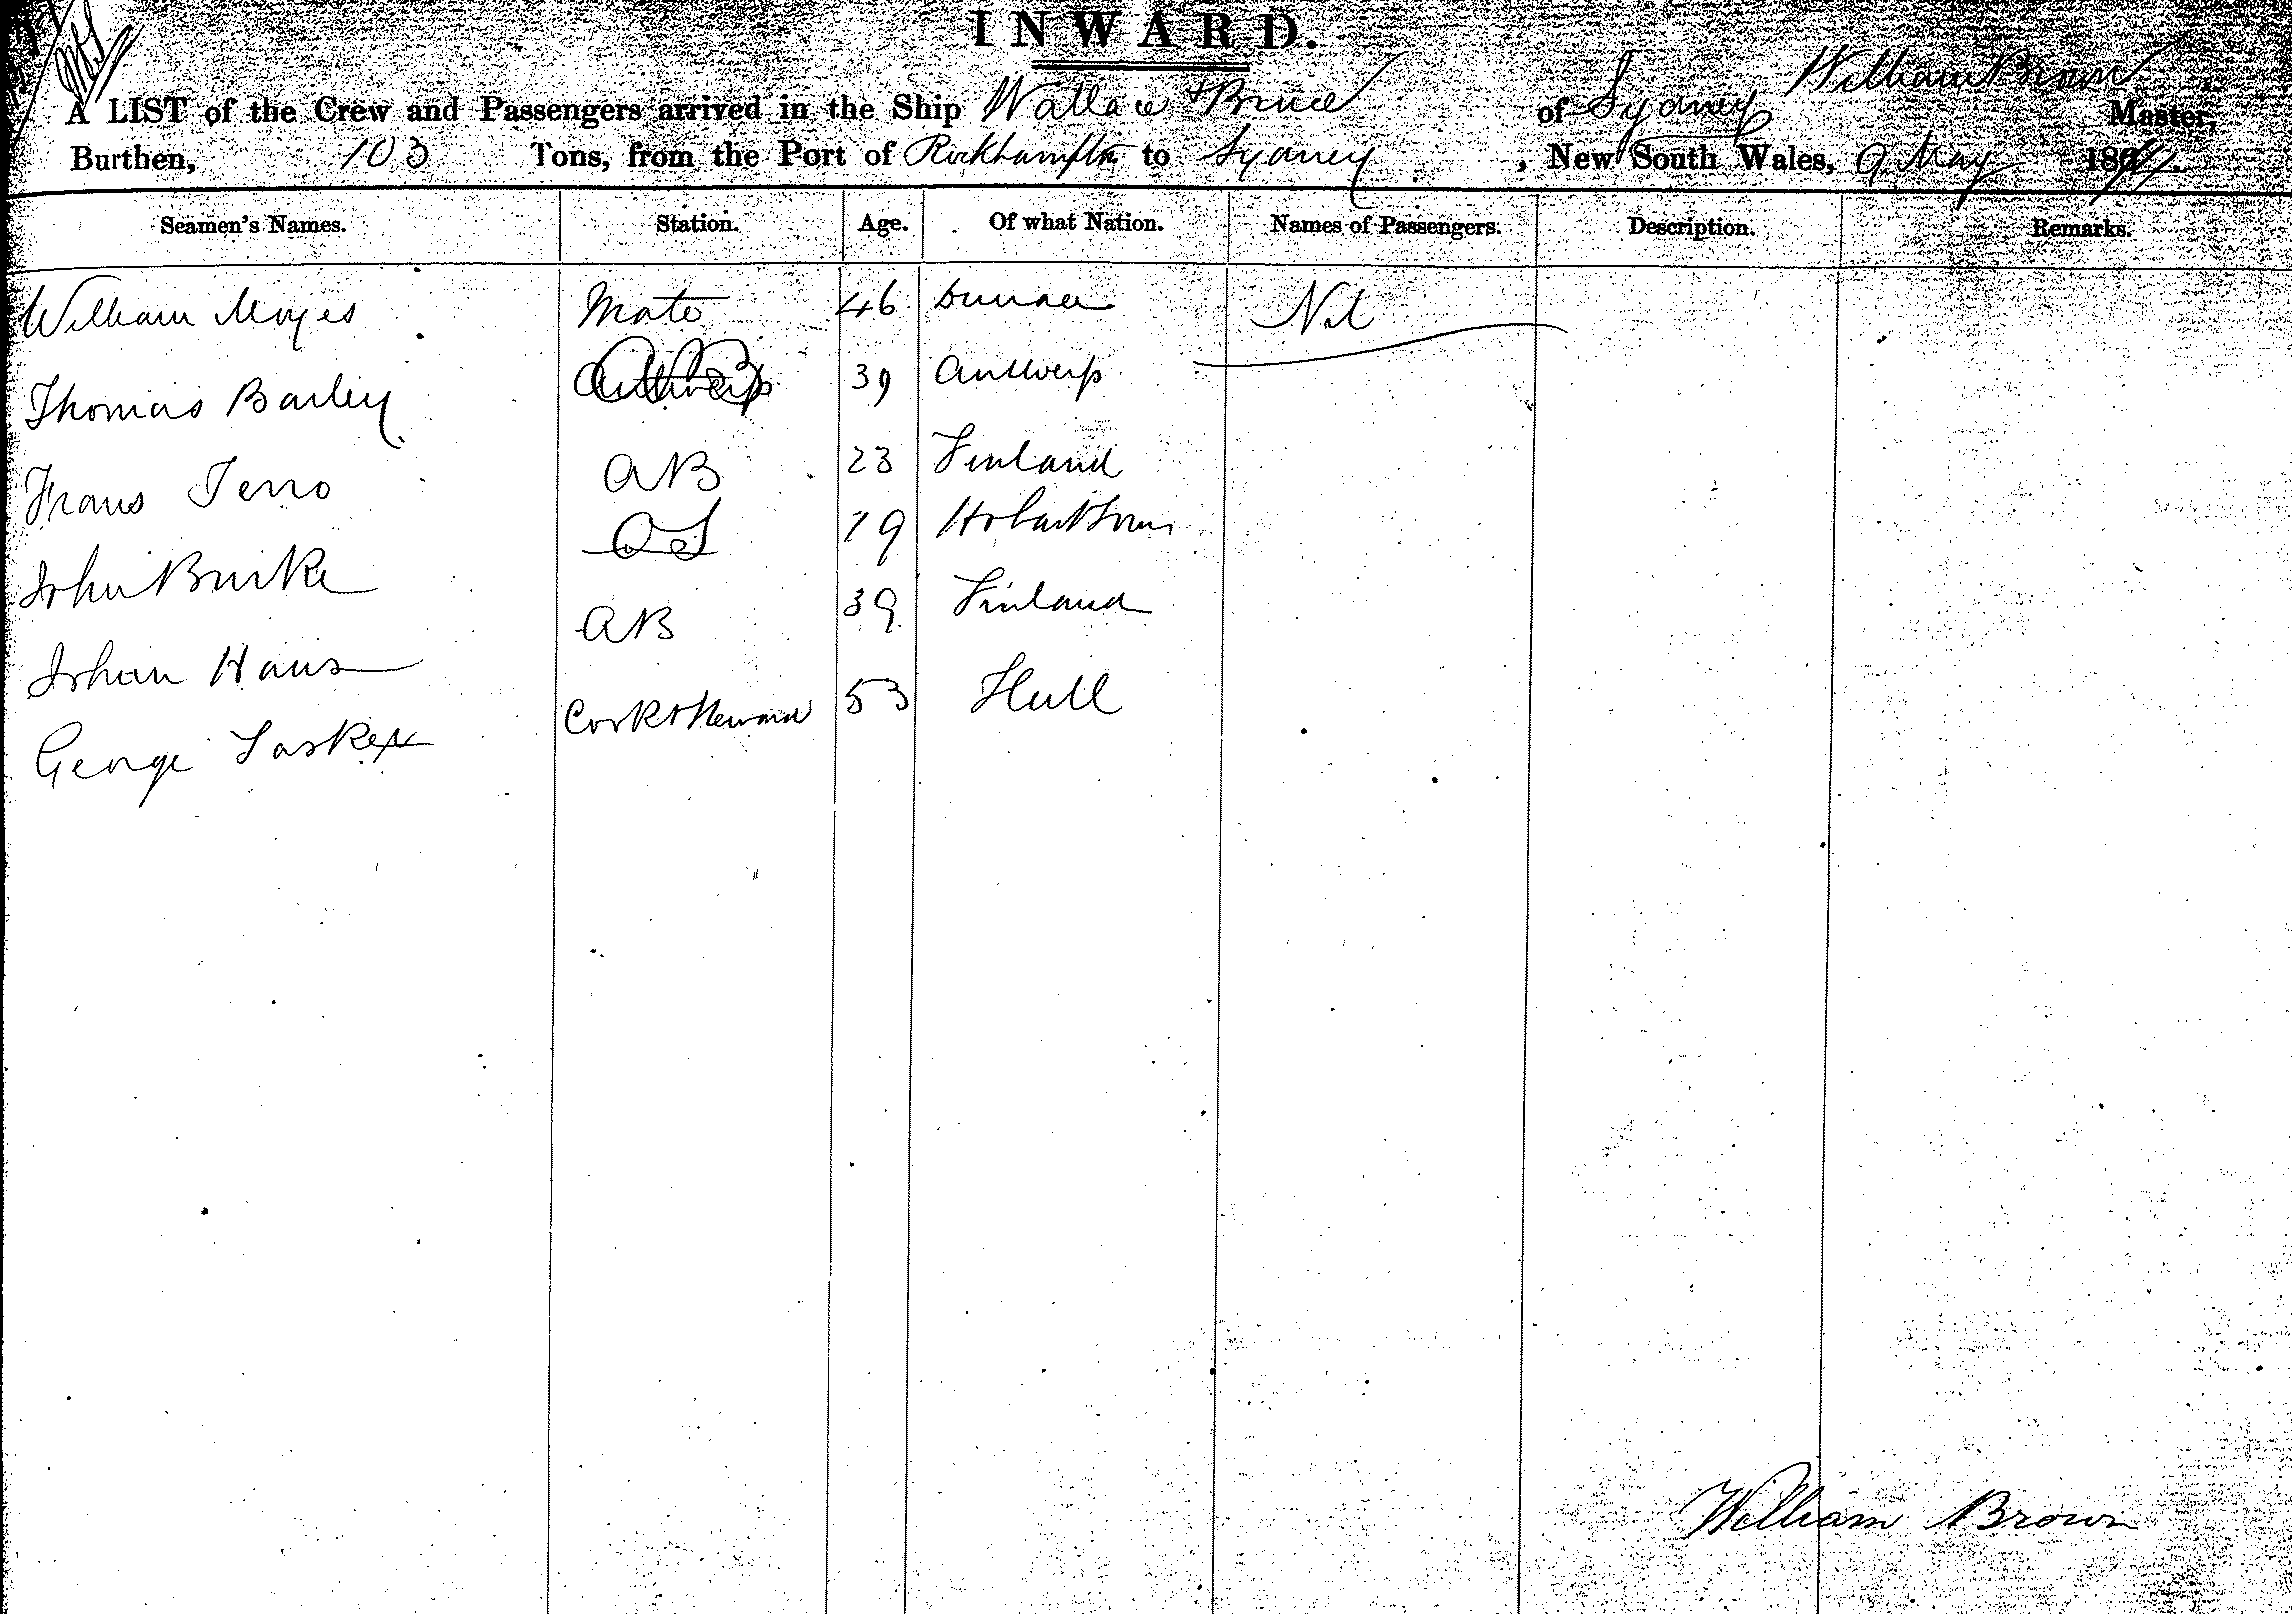 INWARD.
William Brown
A LIST of the Crew and Passengers arrived in the Ship Wallace & Bruce of Sydney Master,
Burthen, 103 Tons, from the Port of Rockhampton to Sydney, New South Wales, 9 May 18
Seamen's Names. Station. Age. Of what Nation. Names of Passengers. Description. Remarks.
William Moyes Mate 46 Dundee Nil
Thomas Barley AB 39 Antwerp
Frans Terro AB 23 Finland
John Burke OS 19 Hobart Town
Johan Haus AB 39 Finland
George Tasker Cook & Steward 53 Hull
William Brown